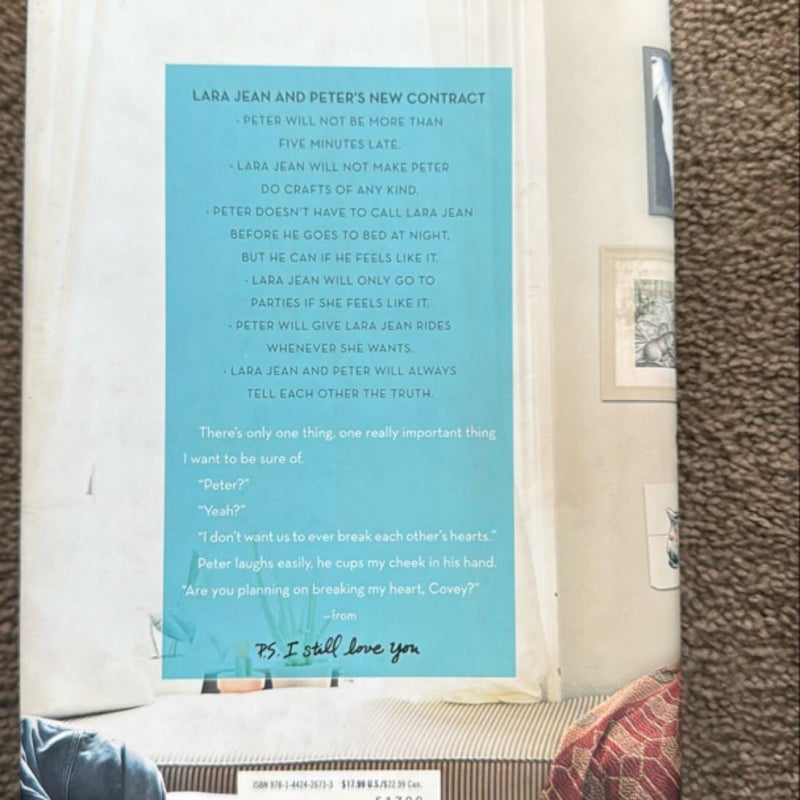 LARA JEAN AND PETER'S NEW CONTRACT
• PETER WILL NOT BE MORE THAN
FIVE MINUTES LATE.
• LARA JEAN WILL NOT MAKE PETER
DO CRAFTS OF ANY KIND.
• PETER DOESN'T HAVE TO CALL LARA JEAN
BEFORE HE GOES TO BED AT NIGHT,
BUT HE CAN IF HE FEELS LIKE IT.
• LARA JEAN WILL ONLY GO TO
PARTIES IF SHE FEELS LIKE IT.
• PETER WILL GIVE LARA JEAN RIDES
WHENEVER SHE WANTS.
• LARA JEAN AND PETER WILL ALWAYS
TELL EACH OTHER THE TRUTH.
There's only one thing, one really important thing
I want to be sure of.
"Peter?"
"Yeah?"
"I don't want us to ever break each other's hearts."
Peter laughs easily, he cups my cheek in his hand.
"Are you planning on breaking my heart, Covey?"
—from
P.S. I still love you
ISBN 978-1-4424-2673-3 $17.99 U.S./$22.99 Can.